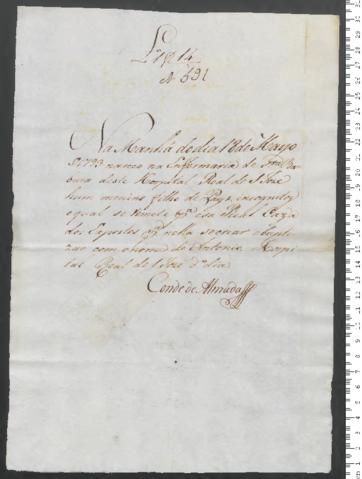 Lº 14
N 531
Na Manhã do dia 18 de Mayo
1793 nasceo na Enfermaria de Stª
deste Hospital Real de S. Joze
hum menino filho de Pays incognitos
e qual se remete pª essa Real Caza
dos Expostos pª nella se criar e bapti
zar com o nome de Antonio Hospi
tal Real de S Joze dº dia
Conde de Almada